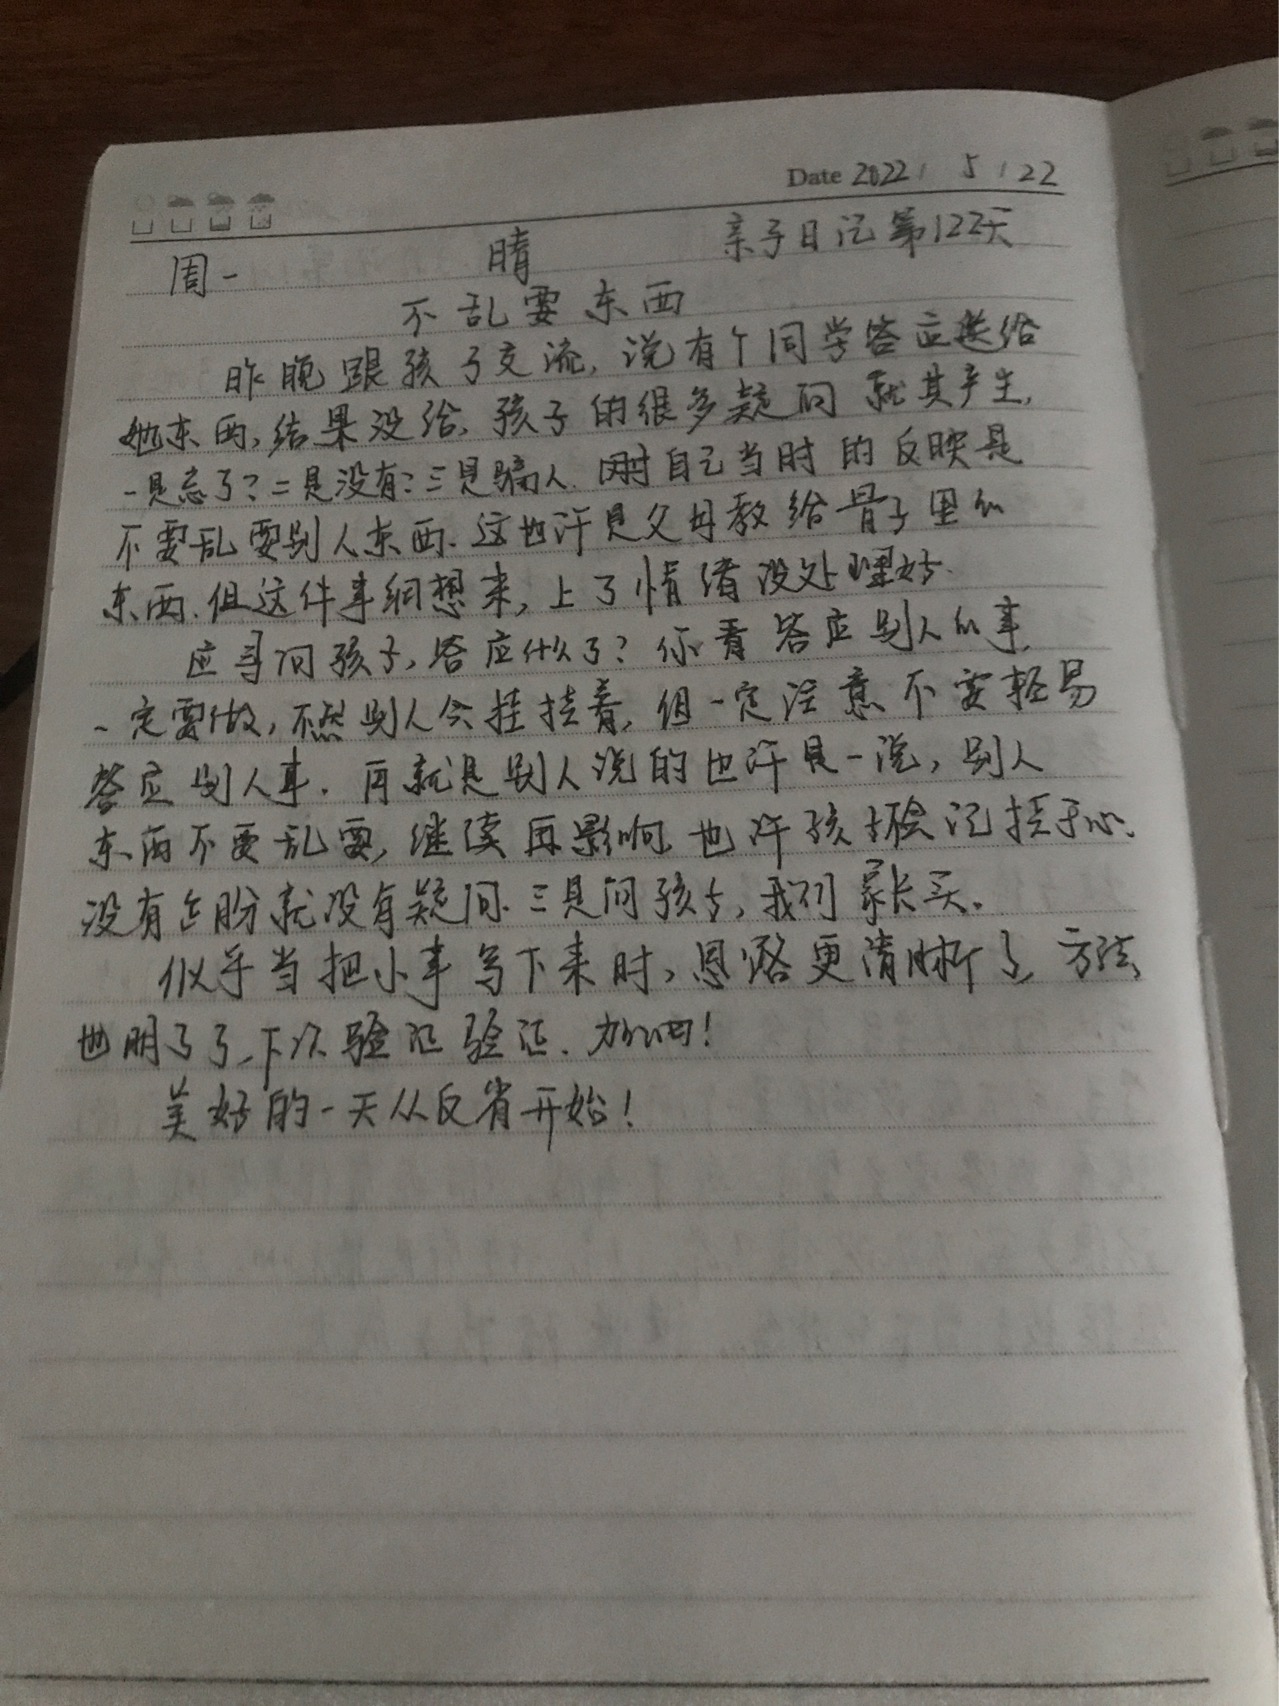 Date 2022 / 5 / 22
周一 晴 亲子日记第122天
不乱要东西
昨晚跟孩子交流,说有个同学答应送给
她东西,结果没给,孩子的很多疑问就其产生,
一是忘了?二是没有?三是骗人.同时自己当时的反映是
不要乱要别人东西.这也许是父母教给骨子里的
东西.但这件事细想来,上了情绪没处理好.
应寻问孩子,答应什么了?你看答应别人的事,
一定要做,不然别人会挂挂着,但一定注意不要轻易
答应别人事.再就是别人说的也许是一说,别人
东西不要乱要,继续再影响.也许孩子会记挂于心.
没有企盼就没有疑问.三是问孩子,我们家长买.
似乎当把小事写下来时,思路更清晰了,方法
也明了了,下次验证验证.加油!
美好的一天从反省开始!